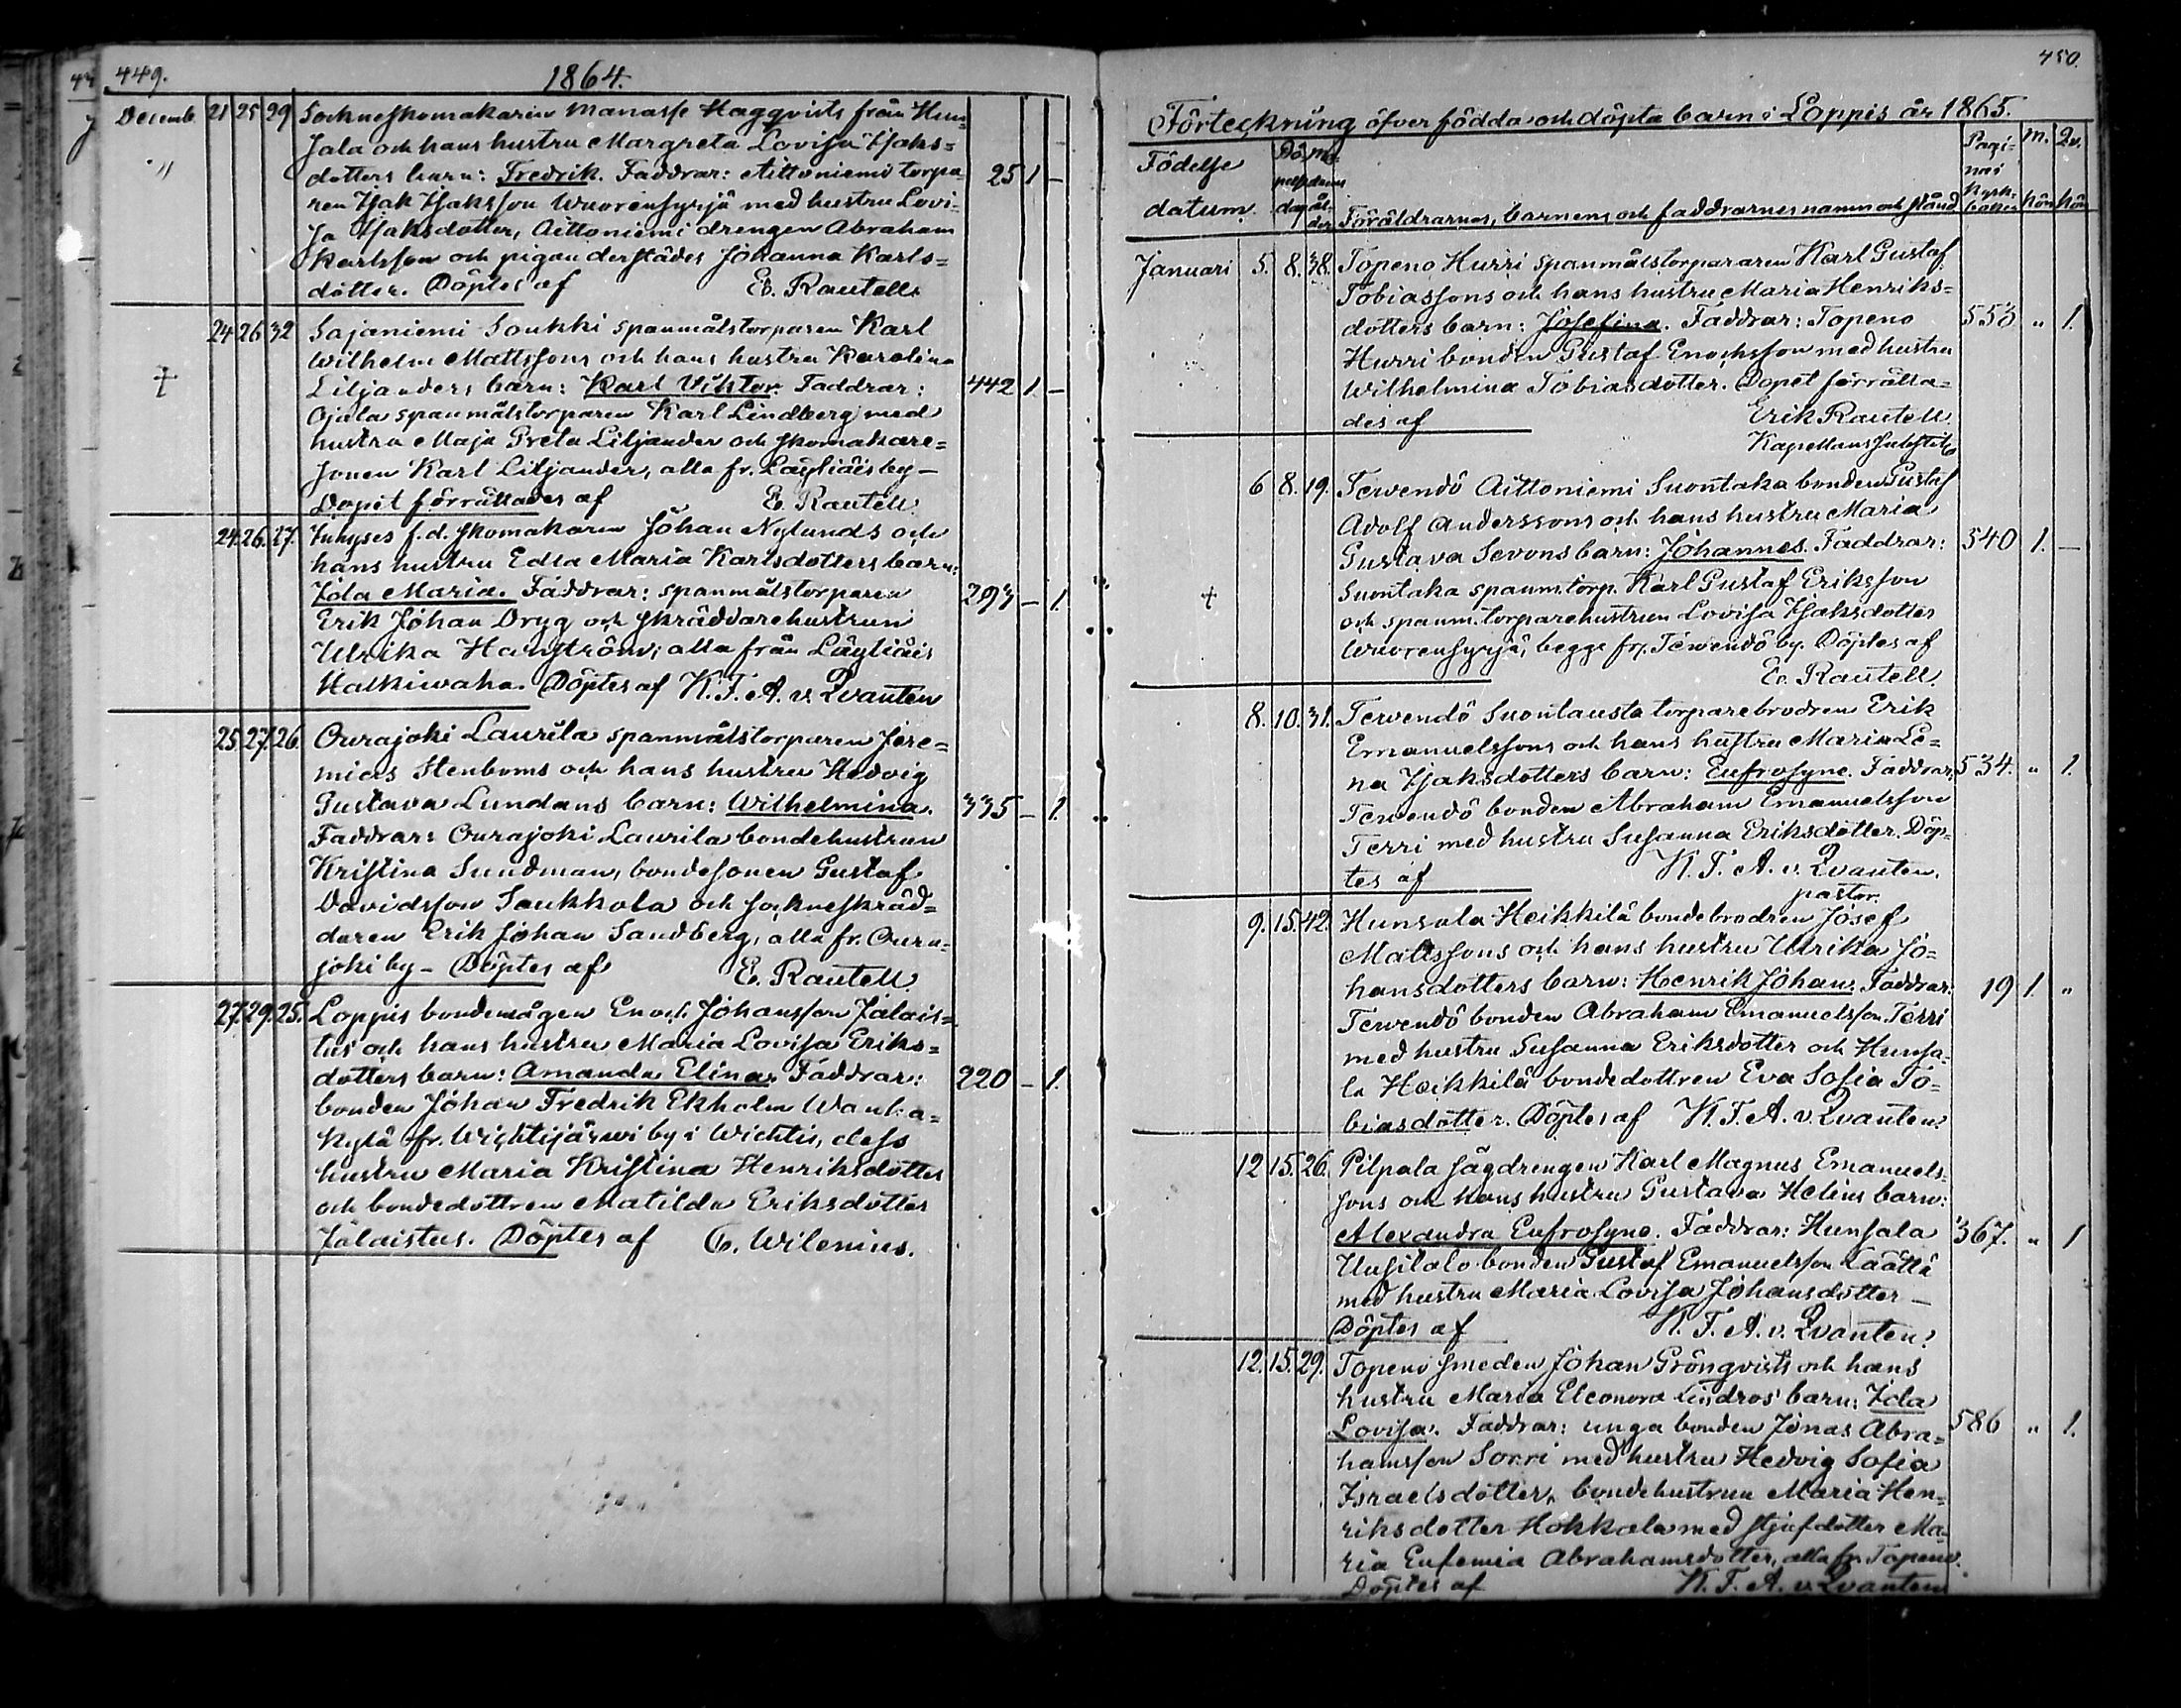 449.
1864.
Decemb. 21 25 29 Sockneskomakaren Manasse Haggqvists från Hun=
sala och hans hustru Margreta Lovisa Isaks=
" dotters barn: Fredrik. Faddrar: Aittoniemi torpa= 25 1 –
ren Isak Isaksson Wuorensyrjä med hustru Lovi=
sa Isaksdotter, Aittoniemi drengen Abraham
Karlsson och pigan derstädes Johanna Karls=
dotter. Döptes af E. Rautell.
24 26 32 Sajaniemi Soukki spanmålstorparen Karl
Wilhelm Mattssons och hans hustru Karolina
† Liljanders barn: Karl Viktor. Faddrar: 442 1 –
Ojala spanmålstorparen Karl Lindberg med
hustru Maja Greta Liljander och skomakare=
sonen Karl Liljander, alla fr. Läyliäis by –
Dopet förrättades af E. Rautell.
24. 26. 27. Inhyses f.d. skomakaren Johan Nylunds och
hans hustru Edla Maria Karlsdotters barn:
Ida Maria. Faddrar: spanmålstorparen 293 – 1.
Erik Johan Dryg och skräddarehustrun
Ulrika Hagström, alla från Läyliäis
Kalkiwaha. Döptes af K. F. A. v. Qvanten
25. 27. 26. Ourajoki Laurila spanmålstorparen Jere=
mias Stenboms och hans hustru Hedvig
Gustava Lundans barn: Wilhelmina. 335 – 1.
Faddrar: Ourajoki Laurila bondehustrun
Kristina Sundman, bondesonen Gustaf
Davidsson Saukkola och sockneskräd=
daren Erik Johan Sandberg, alla fr. Oura=
joki by – Döptes af E. Rautell.
27. 29. 25. Loppis bondemågen Enoch Johansson Jälais=
tus och hans hustru Maria Lovisa Eriks=
dotters barn: Amanda Elina. Faddrar: 220 – 1.
bonden Johan Fredrik Ekholm Wanha=
kylä fr. Wichtijärwi by i Wichtis, dess
hustru Maria Kristina Henriksdotter
och bondedottren Matilda Eriksdotter
Jälaistus. Döptes af G. Wilenius.
450.
Förteckning öfver födda och döpta barn i Loppis år 1865.
Födelse datum. Döpelsedag Modrens ålder Föräldrarnes, barnens och faddrarnes namn och stånd Pagina i Kyrkboken M. kön Qv. kön
Januari 5. 8. 38. Topeno Hurri spanmålstorpararen Karl Gustaf
Tobiassons och hans hustru Maria Henriks=
dotters barn: Josefina. Faddrar: Topeno 553 " 1.
Hurri bonden Gustaf Enochsson med hustru
Wilhelmina Tobiasdotter. Dopet förrätta=
des af Erik Rautell
Kapellans substit.
6 8. 19. Terwendö Aittoniemi Suontaka bonden Gustaf
Adolf Anderssons och hans hustru Maria
Gustava Sevons barn: Johannes. Faddrar: 540 1. –
† Suontaka spanm. torp. Karl Gustaf Eriksson
och spanm. torparehustrun Lovisa Isaksdotter
Wuorensyrjä, begge fr. Terwendö by. Döptes af
E. Rautell.
8. 10. 31. Terwendö Suontausta torparebrodren Erik
Emanuelssons och hans hustru Maria Le=
na Isaksdotters barn: Eufrosyne. Faddrar: 534. " 1.
Terwendö bonden Abraham Emanuelsson
Terri med hustru Susanna Eriksdotter. Döp=
tes af K. F. A. v. Qvanten.
pastor.
9. 15. 42. Hunsala Heikkilä bondebrodren Josef
Mattssons och hans hustru Ulrika Jo=
hansdotters barn: Henrik Johan. Faddrar: 19 1. "
Terwendö bonden Abraham Emanuelsson Terri
med hustru Susanna Eriksdotter och Hunsa=
la Heikkilä bondedottren Eva Sofia To=
biasdotter. Döptes af K. F. A. v. Qvanten.
12 15. 26. Pilpala sågdrengen Karl Magnus Emanuels=
sons och hans hustru Gustava Helins barn:
Alexandra Eufrosyne. Faddrar: Hunsala 367. " 1
Uusitalo bonden Gustaf Emanuelsson Laättä
med hustru Maria Lovisa Johansdotter –
Döptes af K. F. A. v. Qvanten.
12. 15. 29. Topeno smeden Johan Grönqvists och hans
hustru Maria Eleonora Lindros' barn: Ida
Lovisa. Faddrar: unga bonden Jonas Abra= 586 " 1.
hamsson Sorri med hustru Hedvig Sofia
Israelsdotter, bondehustrun Maria Hen=
riksdotter Hokkala med stjufdotter Ma=
ria Eufemia Abrahamsdotter, alla fr. Topeno.
Döptes af K. F. A. v. Qvanten